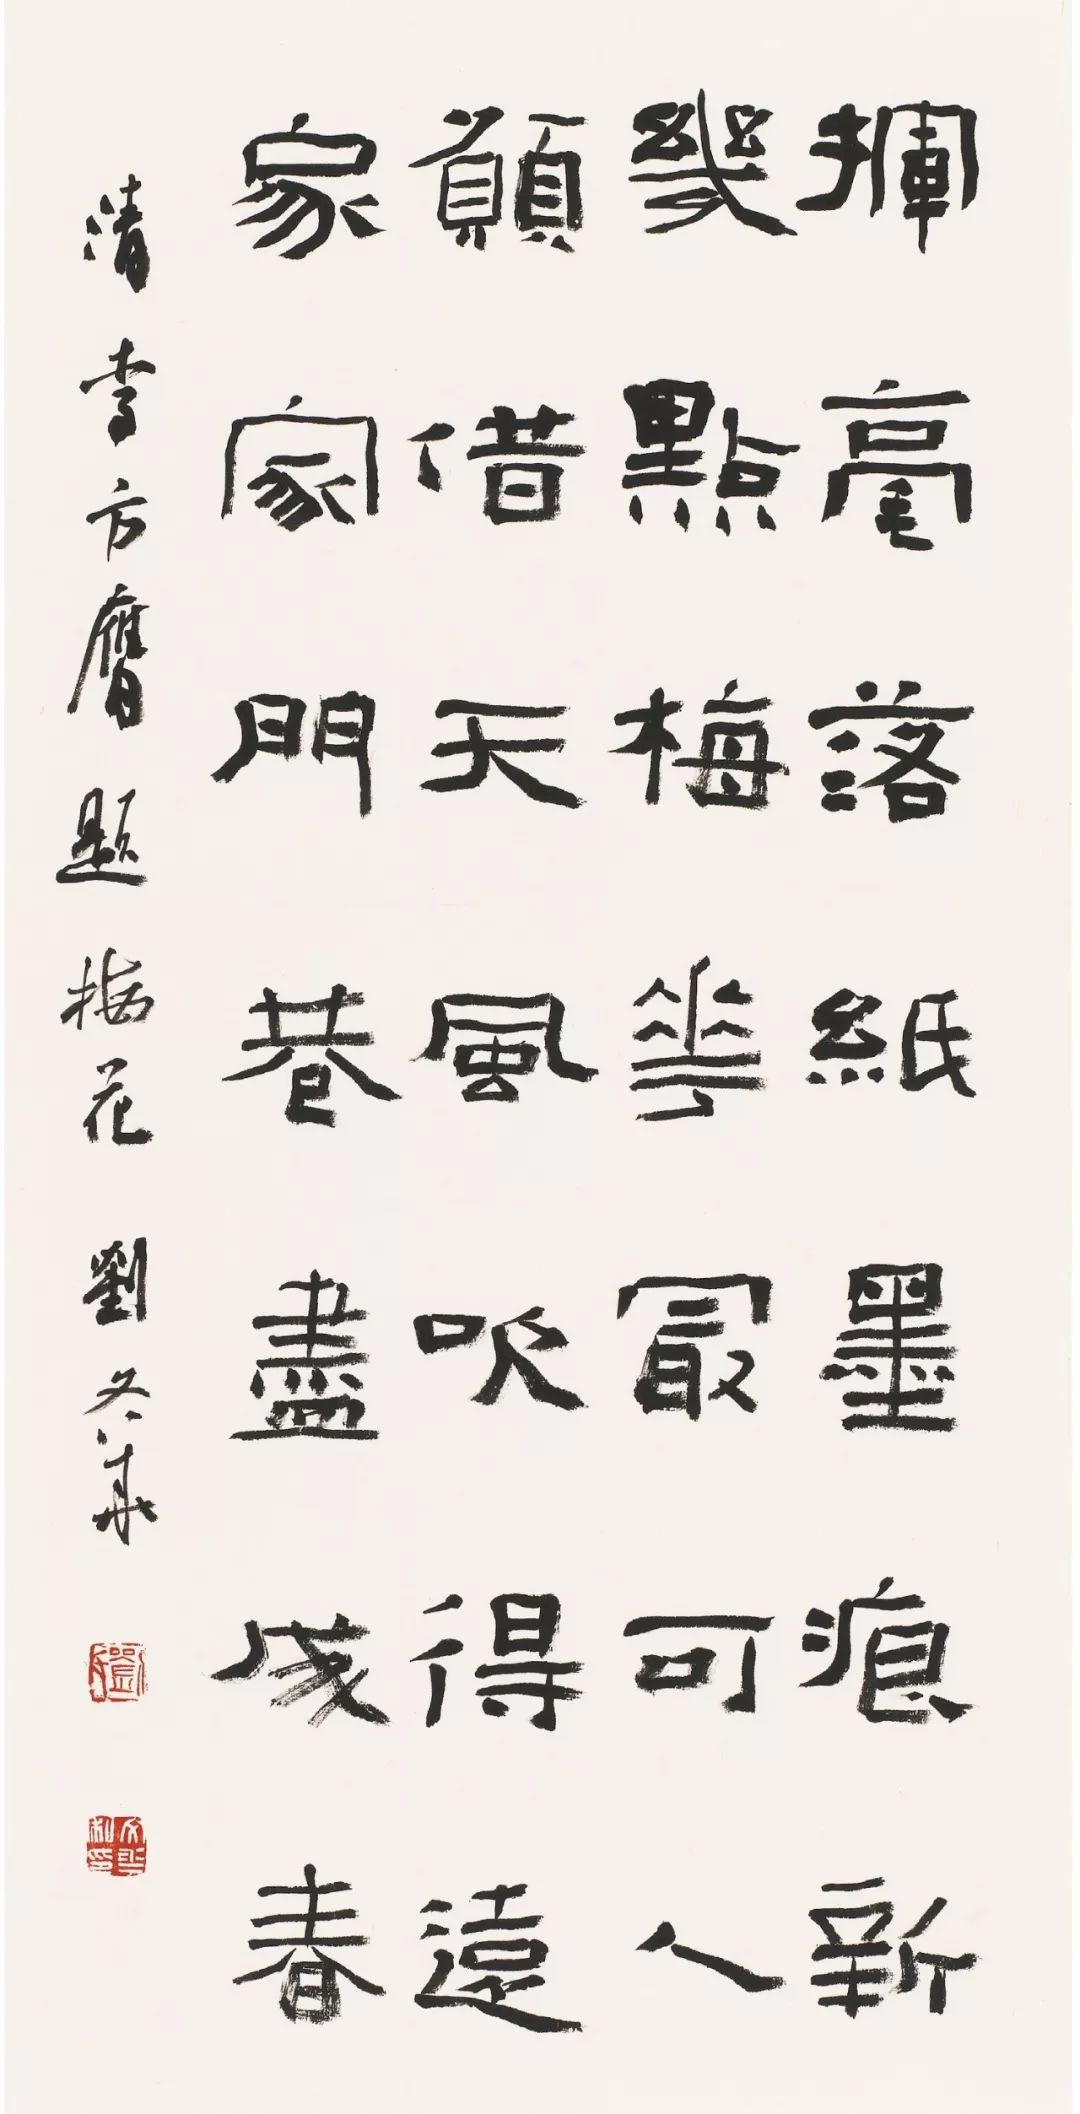 揮毫落紙墨痕新
幾點梅花最可人
願借天風吹得遠
家家門巷盡成春
清李方膺題梅花 劉文華